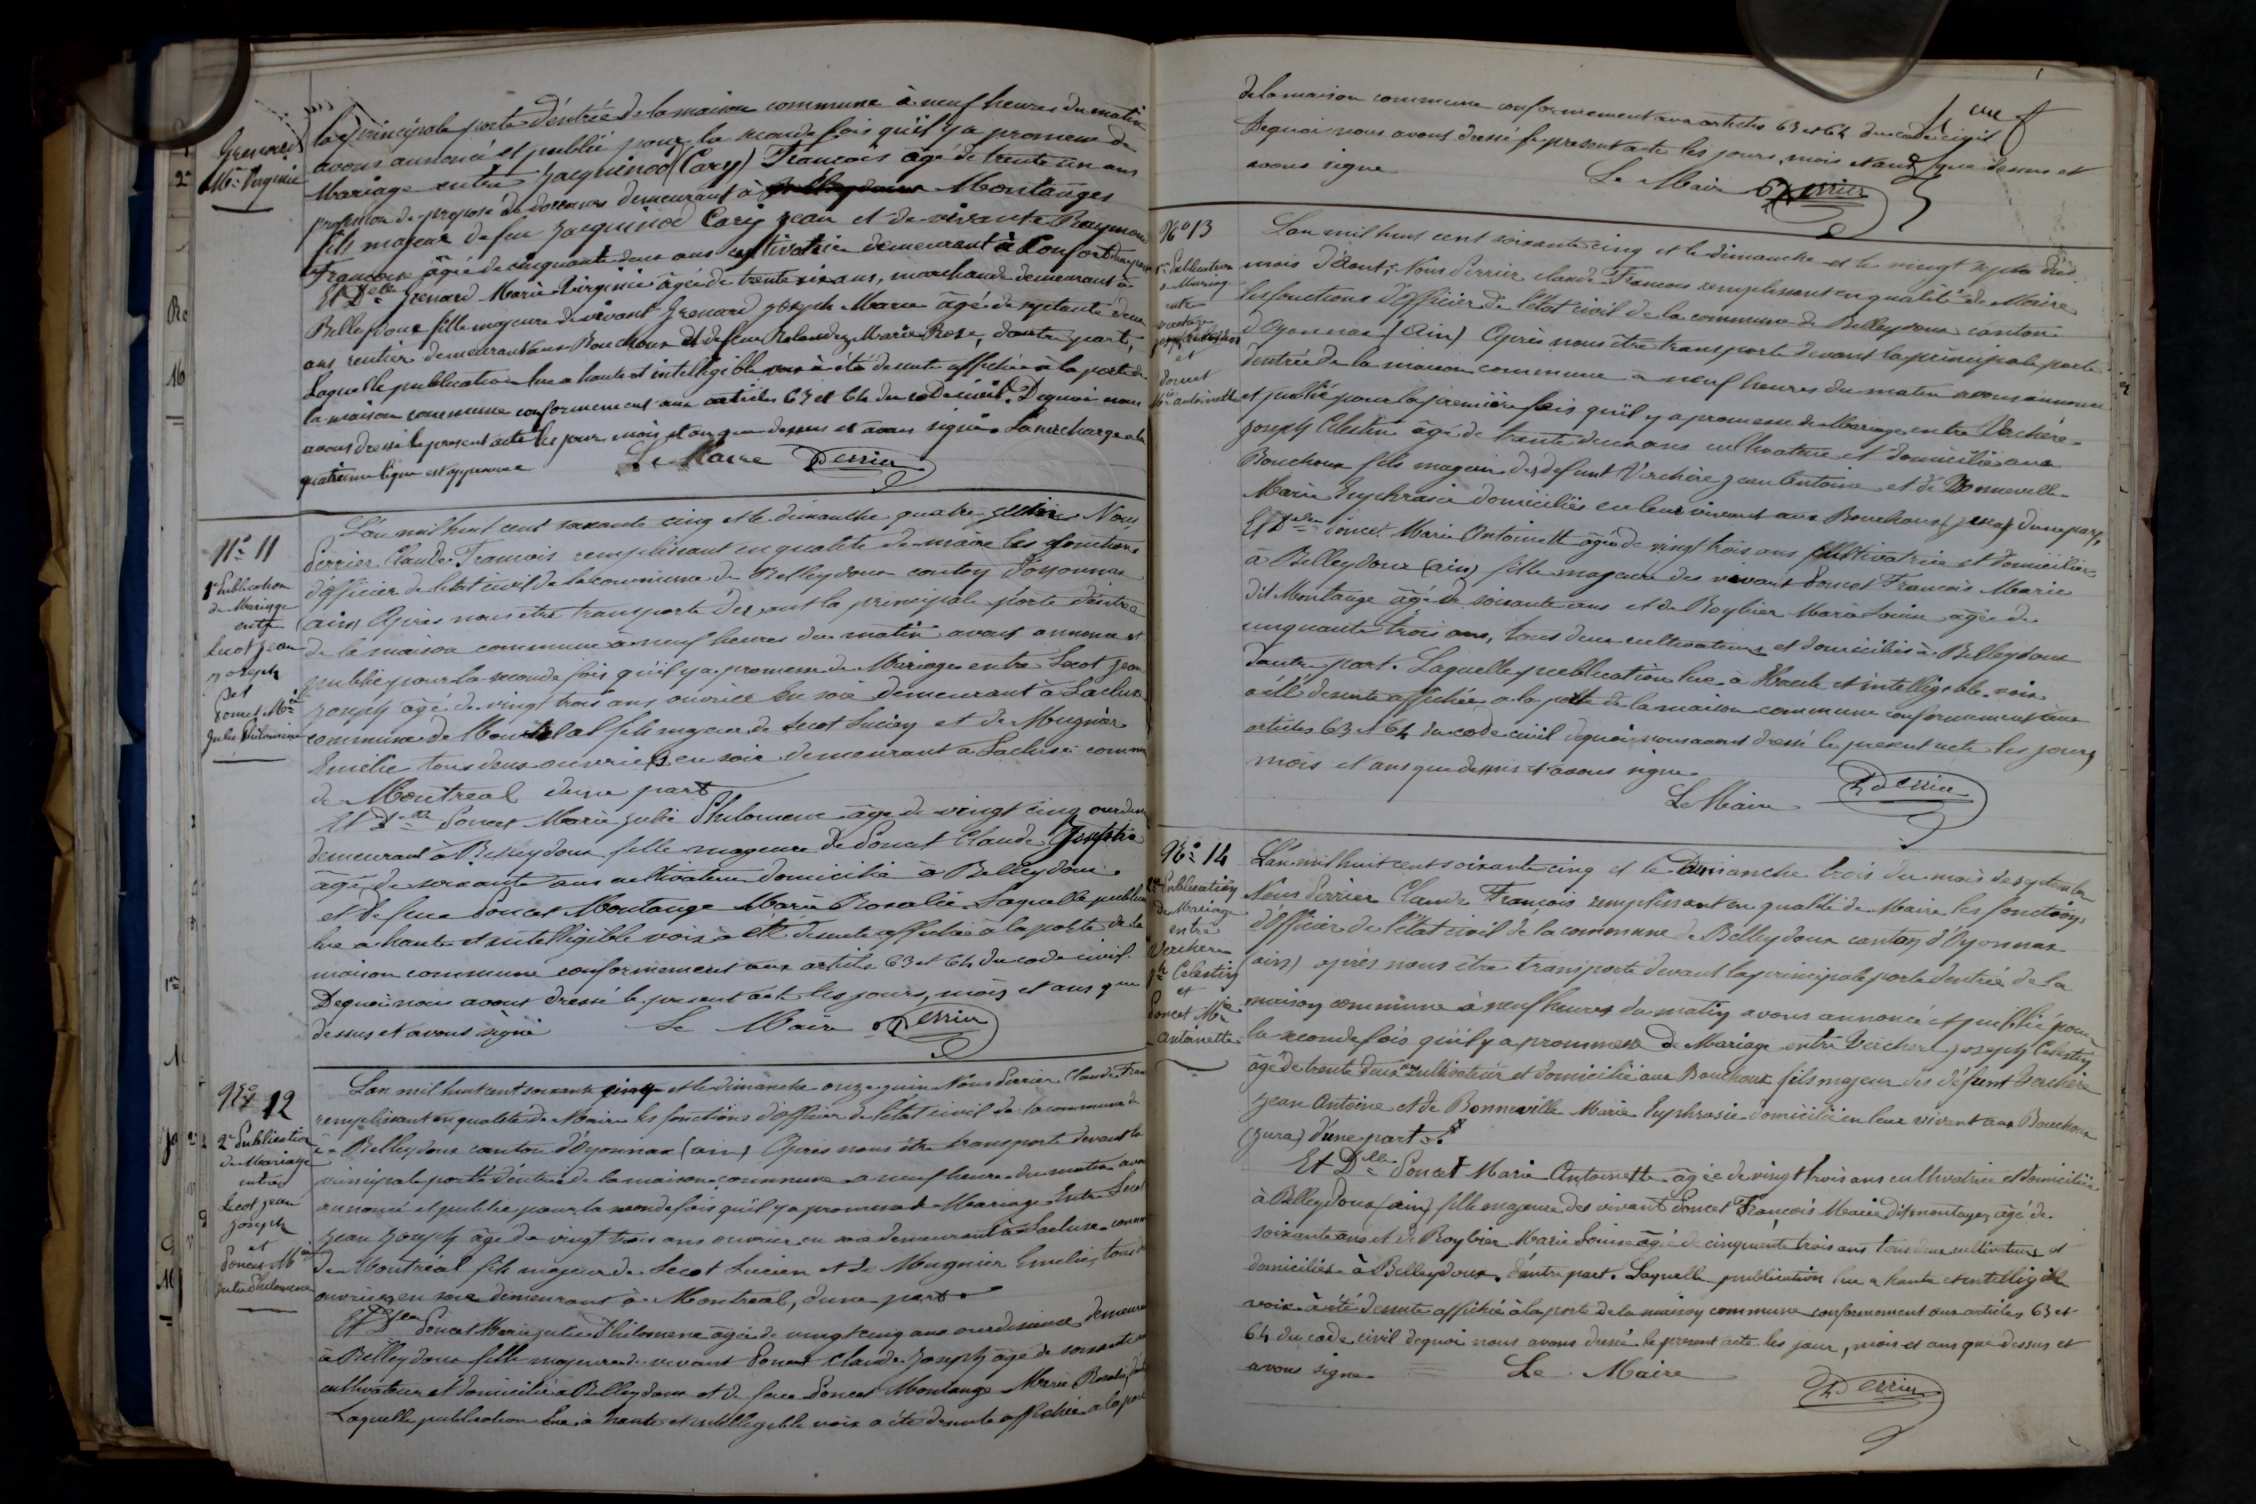 Grenard
Mie Virginie
la principale porte d'entrée de la maison commune à neuf heures du matin
avons annoncé et publié pour la seconde fois qu'il y a promesse de
Mariage entre Jacquinod (Cary) François âgé de trente un ans
profession de préposé de douanes demeurant à Montanges
fils majeur de feu Jacquinod Cary Jean et de vivante Raymond
Françoise âgée de cinquante deux ans cultivatrice demeurant à Confort
Et Delle Grenard Marie Virginie âgée de trente six ans, marchande demeurant à
Belleydoux fille majeure de vivant Grenard Joseph Marie âgé de septante deux
ans rentier demeurant aux Bouchoux et de feue Rolandez Marie Rose, d'autre part,
Laquelle publication lue a haute et intelligible voix à été de suite affichée à la porte de
la maison commune conformement aux articles 63 et 64 du code civil. Dequoi nous
avons dressé le present acte les jour mois et an que dessus et avons signé. La surcharge a la
quatrieme ligne est approuvée
Le Maire Perrier
N° 11
1e Publication
de Mariage
entre
Lecot Jean
Joseph
et
Poncet Mie
Julie Philomène
L'an mil huit cent soixante cinq et le dimanche quatre juin Nous
Perrier Claude François remplissant en qualité de maire les fonctions
d'officier de l'état civil de la commune de Belleydoux canton d'oyonnax
(ain) Après nous être transporté devant la principale porte d'entrée
de la maison commune à neuf heures du matin avons annoncé et
publié pour la seconde fois qu'il y a promesse de Mariage entre Lecot Jean
Joseph âgé de vingt trois ans ouvrier en soie demeurant à Lacluse
commune de Montréal fils majeur de Lecot Lucien et de Mugnier
Emélie tous deux ouvriers en soie demeurant a Lacluse commune
de Montreal d'une part
Et Delle Poncet Marie Julie Philomene âgé de vingt cinq ourdisseuse
demeurant à Belleydoux fille majeure de Poncet Claude Joseph
âgé de soixante ans cultivateur domicilié à Belleydoux
et de feue Poncet Montange Marie Rosalie Laquelle publication
lue a haute et intelligible voix à été de suite affichée à la porte de la
maison commune conformement aux article 63 et 64 du code civil.
Dequoi nous avons dressé le present acte les jours, mois et ans que
dessus et avons signé Le Maire Perrier
N° 12
2e Publication
de Mariage
entre
Lecot Jean
Joseph
et
Poncet Mie
Julie Philomène
L'an mil huit cent soixante cinq et le dimanche onze juin Nous Perrier Claude Fran
remplissant en qualité de Maire les fonctions d'officier de l'état civil de la commune de
Belleydoux canton d'Oyonnax (ain) Après nous être transporté devant la
principale porte d'entrée de la maison commune a neuf heures du matin avons
annoncé et publié pour la seconde fois qu'il y a promesse de Mariage Entre Lecot
Jean Joseph âgé de vingt trois ans ouvrier en soie demeurant à Lacluse commune
de Montréal fils majeur de Lecot Lucien et de Mugnier Emelie, tous deux
ouvriers en soie demeurant à Montreal, d'une part
Et Delle Poncet Marie Julie Philomene âgée de vingt cinq ans ourdisseuse demeurant
à Belleydoux fille majeure de vivant Poncet Claude Joseph âgé de soixante ans
cultivateur et domicilié a Belleydoux et de feue Poncet Montange Marie Rosalie
Laquelle publication lue à haute et intelligible voix a été de suite affichée a la porte
de la maison commune conformement aux articles 63 et 64 du code civil
Dequoi nous avons dressé le present acte les jours, mois et ans que dessus et
avons signé Le Maire Perrier
N° 13
1e Publication
de Mariage
entre
Joseph Célestin
et
Poncet
Mie antoinette
L'an mil huit cent soixante cinq et le dimanche et le vingt sept du dit
mois d'Aout; Nous Perrier claude François remplissant en qualité de Maire
les fonctions d'Officier de l'état civil de la commune de Belleydoux canton
d'Oyonnax (Ain) Après nous être transporté devant la principale porte
d'entrée de la maison commune a neuf heures du matin avons annoncé
et publié pour la premiere fois qu'il y a promesse de Mariage entre Verchère
Joseph Célestin âgé de trente deux ans cultivateur et domicilié aux
Bouchoux fils majeur des défunt Verchère Jean Antoine et de Bonneville
Marie Euphrasie domiciliés en leur vivant aux Bouchoux (Jura) d'une part,
Et Delle Poncet Marie Antoinette âgée de vingt trois ans cultivatrice et domiciliée
à Belleydoux (ain) fille majeure des vivant Poncet François Marie
dit Montange âgé de soixante ans et de Roybier Marie Louise âgée de
cinquante trois ans, tous deux cultivateurs et domiciliés à Belleydoux
d'autre part. Laquelle publication lue à Haute et intelligible voix
a été de suite affichée a la porte de la maison commune conformement aux
articles 63 et 64 du code civil dequoi nous avons dressé le present acte les jours,
mois et ans que dessus et avons signé
Le Maire Perrier
N° 14
2e Publication
de Mariage
entre
Verchere
Jh Celestin
et
Poncet Mie
Antoinette
L'an mil huit cent soixante cinq et le Dimanche trois du mois de septembre
Nous Perrier Claude François remplissant en qualité de Maire les fonctions
d'Officier de l'état civil de la commune de Belleydoux canton d'Oyonnax
(ain) après nous être transporté devant la principale porte d'entrée de la
maison commune à neuf heures du matin avons annoncé et publié pour
la seconde fois qu'il y a promesse de Mariage entre Verchere Joseph Celestin
âgé de trente deux ans cultivateur et domicilié aux Bouchoux fils majeur des défunt Verchère
Jean Antoine et de Bonneville Marie Euphrasie domiciliés en leur vivant aux Bouchoux
(Jura) d'une part
Et Delle Poncet Marie Antoinette âgée de vingt trois ans cultivatrice et domiciliée
à Belleydoux (ain) fille majeure des vivant Poncet François Marie dit montange, âgé de
soixante ans et de Roybier Marie Louise âgée de cinquante trois ans tous deux cultivateurs et
domiciliés à Belleydoux, d'autre part. Laquelle publication lue a haute et intelligible
voix à été de suite affichée à la porte de la maison commune conformement aux articles 63 et
64 du code civil dequoi nous avons dressé le present acte les jour, mois et ans que dessus et
avons signé Le Maire
Perrier